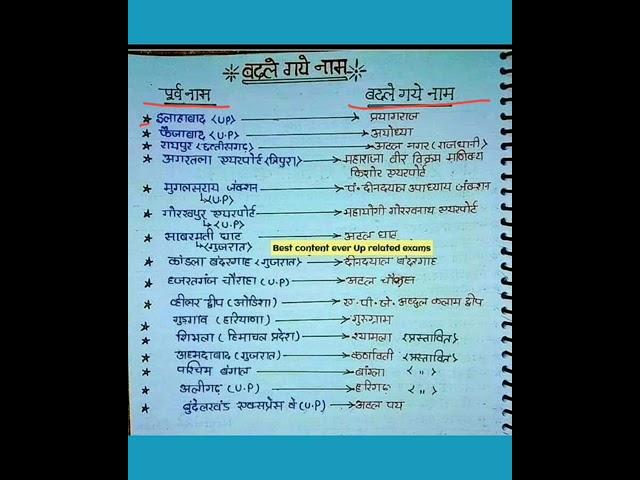 बदले गये नाम
पूर्व नाम बदले गये नाम
इलाहाबाद <UP> प्रयागराज
फैजाबाद <U.P> अयोध्या
रायपुर <छत्तीसगढ़> अटल नगर (राजधानी)
अगरतला एयरपोर्ट <त्रिपुरा> महाराजा वीर विक्रम माणिक्य
किशोर एयरपोर्ट
मुगलसराय जंक्शन पं. दीनदयाल उपाध्याय जंक्शन
<U.P>
गोरखपुर एयरपोर्ट महायोगी गोरखनाथ एयरपोर्ट
<U.P>
साबरमती घाट अटल घाट
<गुजरात>
Best content ever Up related exams
कांडला बंदरगाह <गुजरात> दीनदयाल बंदरगाह
हजरतगंज चौराहा (U.P) अटल चौक
व्हीलर द्वीप (ओडिशा) ए. पी. जे. अब्दुल कलाम द्वीप
गुड़गांव (हरियाणा) गुरुग्राम
शिमला (हिमाचल प्रदेश) श्यामला <प्रस्तावित>
अहमदाबाद (गुजरात) कर्णावती <प्रस्तावित>
पश्चिम बंगाल बांग्ला < ,, >
अलीगढ़ (U.P) हरिगढ़ < ,, >
बुंदेलखंड एक्सप्रेस वे (U.P) अटल पथ